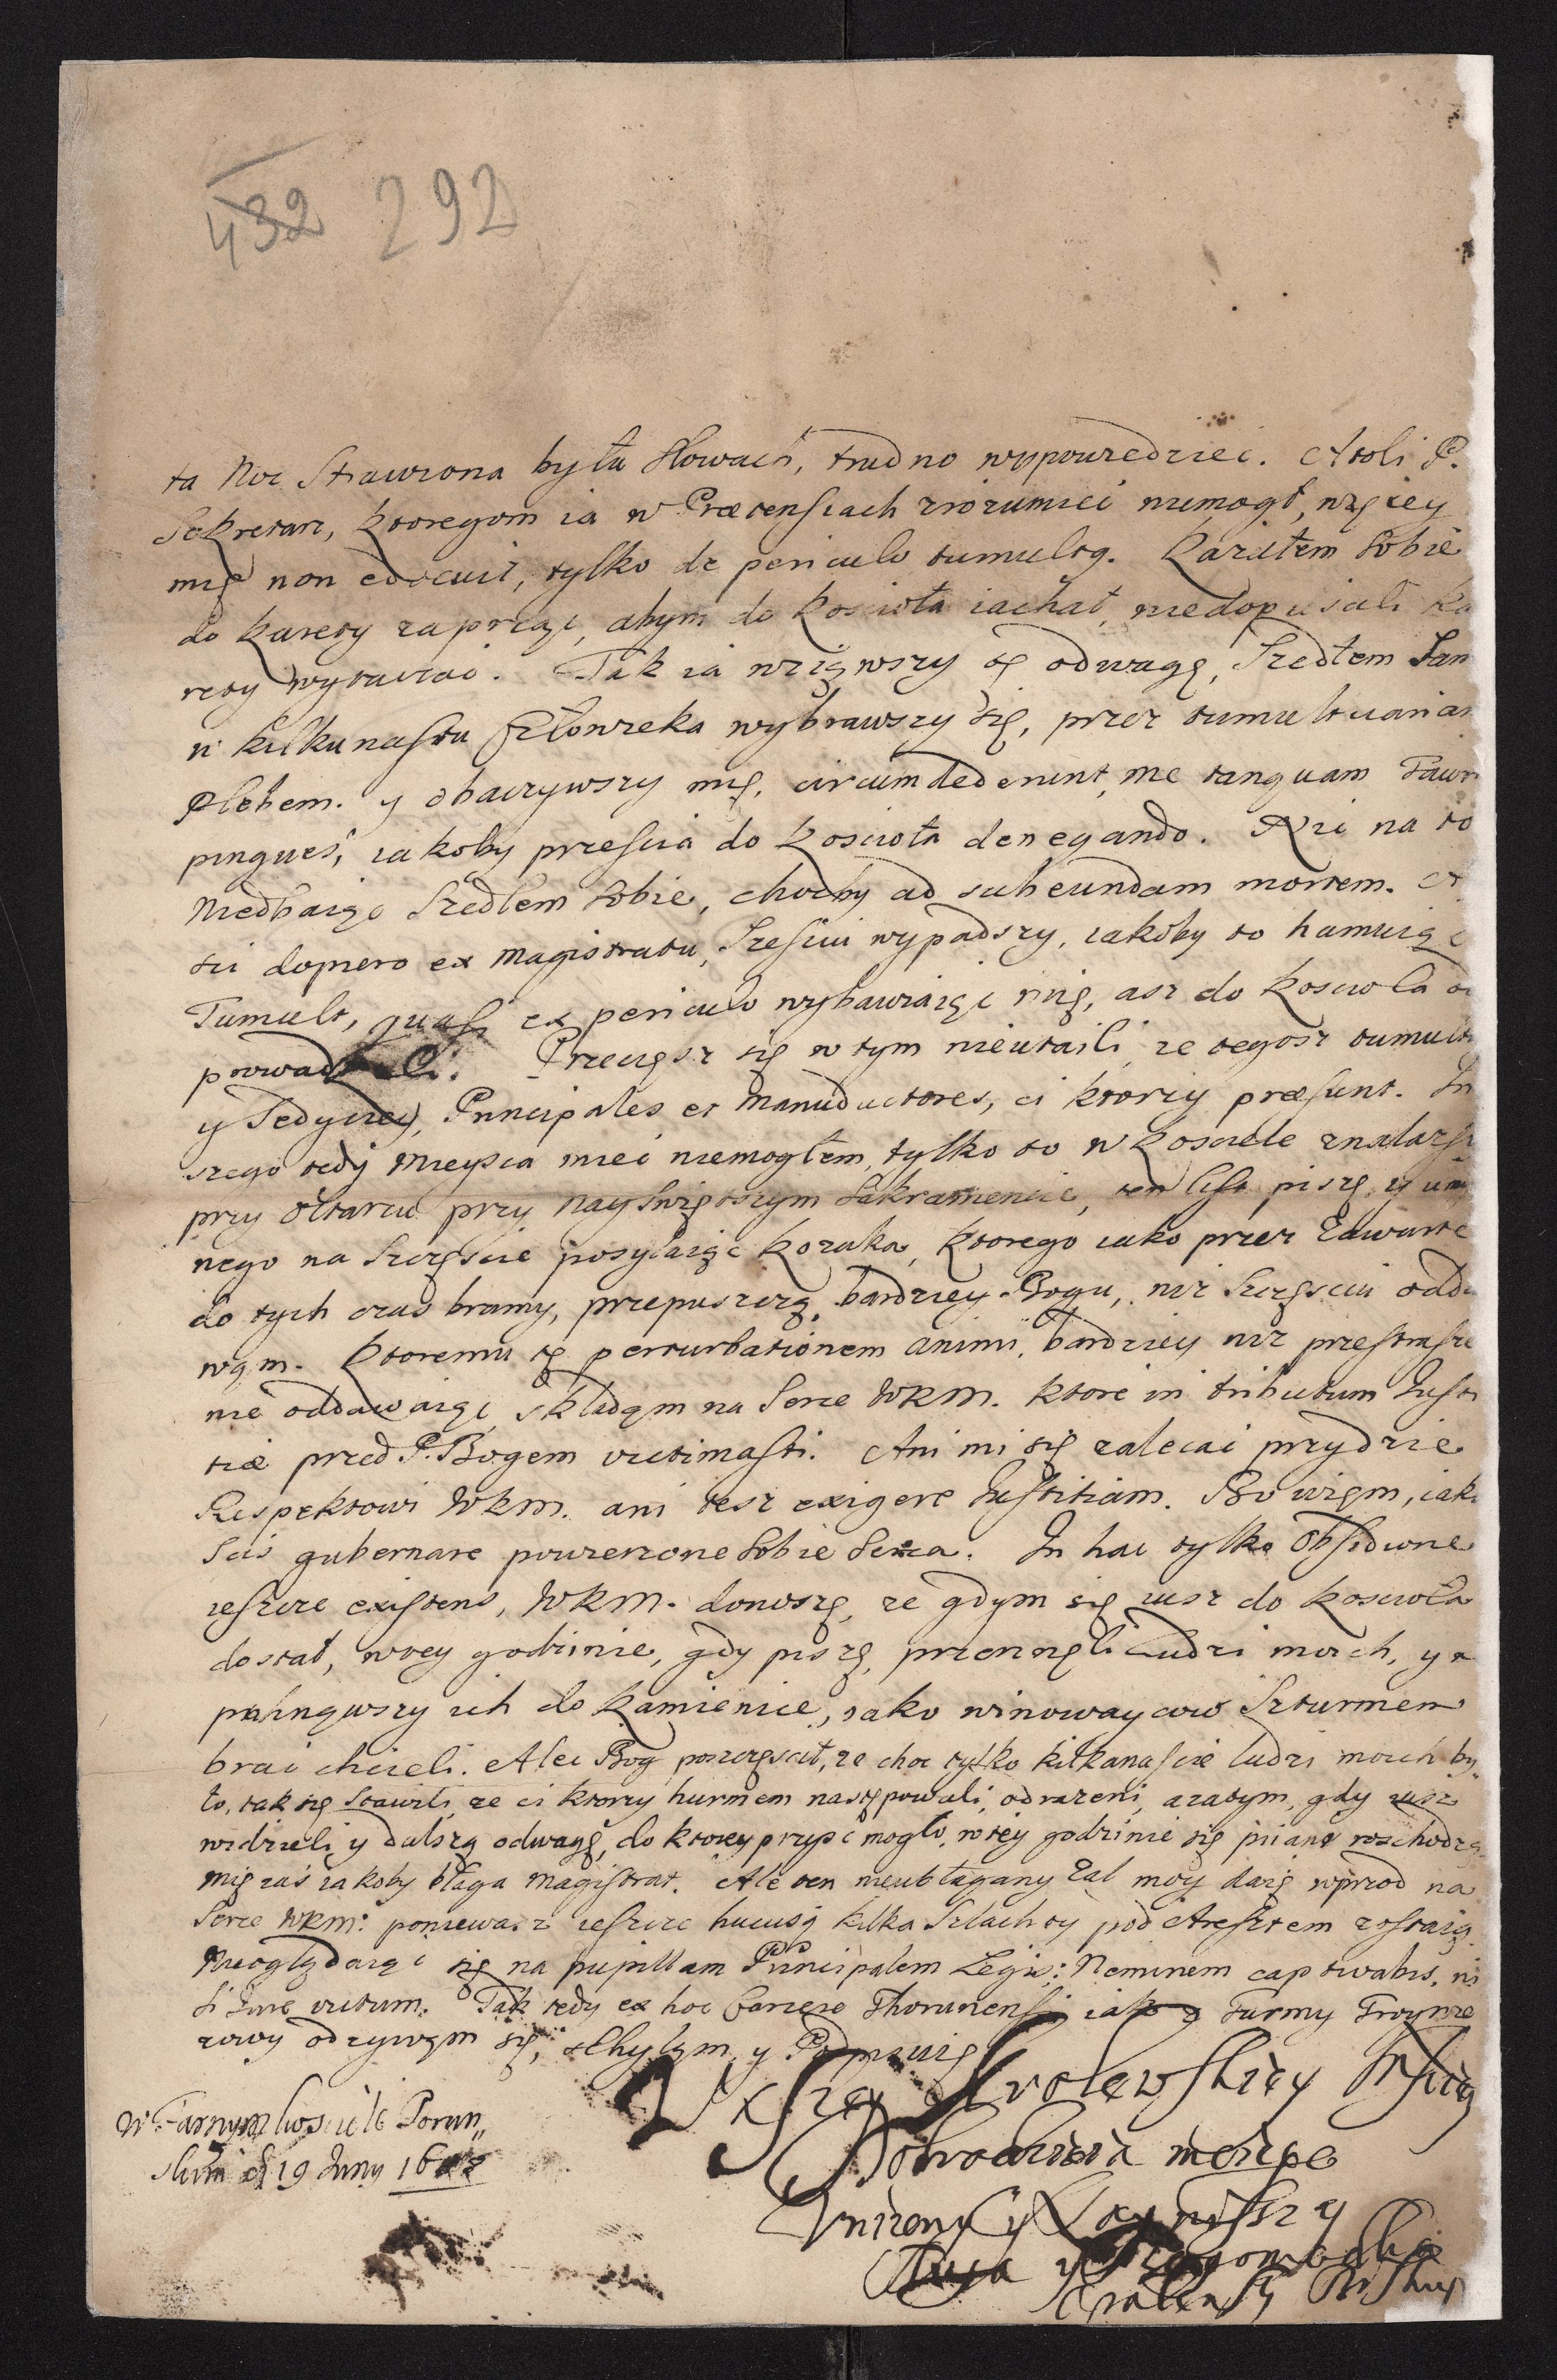 432 292
ta Noc Strawiona była Słowach, trudno wypowiedziec. Atoli P.
Sekretarz, ktoregom ia w Prætensiach zrozumiec niemogł, więcey
mię non edocuit, tylko de periculo tumultq. Kazałem sobie
do karety zaprządz, abym do koscioła iachał, niedopuscili ka
rety wytaczac. Tak ia wziąwszy tę odwagę, Szedłem Sam
w kilkunastu Człowieka wybrawszy się, przez tumultuarian
plebem. y obaczywszy mię, circumdederunt me tanquam Tauri
pingues, iakoby przescia do koscioła denegando. Nic na to
niedbaiąc Szedłem sobie, chocby ad subeundam mortem. A
ci dopiero ex Magistratu, Szescui wypadszy, iakoby to hamuiąc
Tumult, quasi ex periculo wybawiaiąc mię, asz do koscioła od
prowadzili. Przeciesz się w tym nieutaili, ze tegosz tumultu
y Sedyciey, Principales et Manuductores, ci ktorzy præsunt. In
szego tedy mieysca miec niemogłem, tylko to w kosciele znalazszy
przy ołtarzu przy Nayswiętszym Sakramencie, ten list piszę, y um
nego na Szczęscie posyłaiąc kozaka, ktorego iako przez Zawarte
do tych czas bramy, przepuszczą, bardziey Bogu, niz Szczęsciu odda
wąm. Ktoremu tę perturbationem animi, bardziey niz przestrasze
nie oddawaiąc, składąm na Serce WKM. ktore in tributum Justi
tiæ przed P. Bogem victimasti. Ani mi się zalecac przydzie
Respektowi WKM. ani tesz exigere Justitiam. Bo więm, iako
Scis gubernare powierzone sobie Serca. In hac tylko Obsidione
ieszcze existens, WKM. donoszę, ze gdym się iusz do koscioła
dostał, w tey godzinie, gdy piszę, przerznęli Ludzi moich, y
pchnąwszy ich do Kamienice, iako winowaycow Szturmem
brac chcieli. Alec Bog poszczęscił, ze choc tylko kilkanascie ludzi moich by
ło, tak się Stawili, ze ci ktorzy hurmem następowali, odrazeni, azatym, gdy iusz
widzieli y dalszą odwagę, do ktorey przysc mogło, w tey godzinie się piane rozchodzą
mię zas iakoby błaga Magistrat. Ale ten nieubłagany Zal moy daię wprzod na
Serce WKM: poniewasz ieszcze hucusq kilka Szlachty pod Aresztem zostaią
nieoglądaiąc się na pupillam Principalem Legis: Neminem captivabis, ni
si Jure victum. Tak tedy ex hoc Carcere Thorunensi iako z Turmy Troynie
zowy odzywąm się, schyląm y Podpisuię
Waszey Krolewskiey Msci
Dobrodzieia mego
Unizony y Naynizszy
Sługa y Bogomodlca
Biskup
W Farnym kosciele Torun„
skim d 19 Juny 16